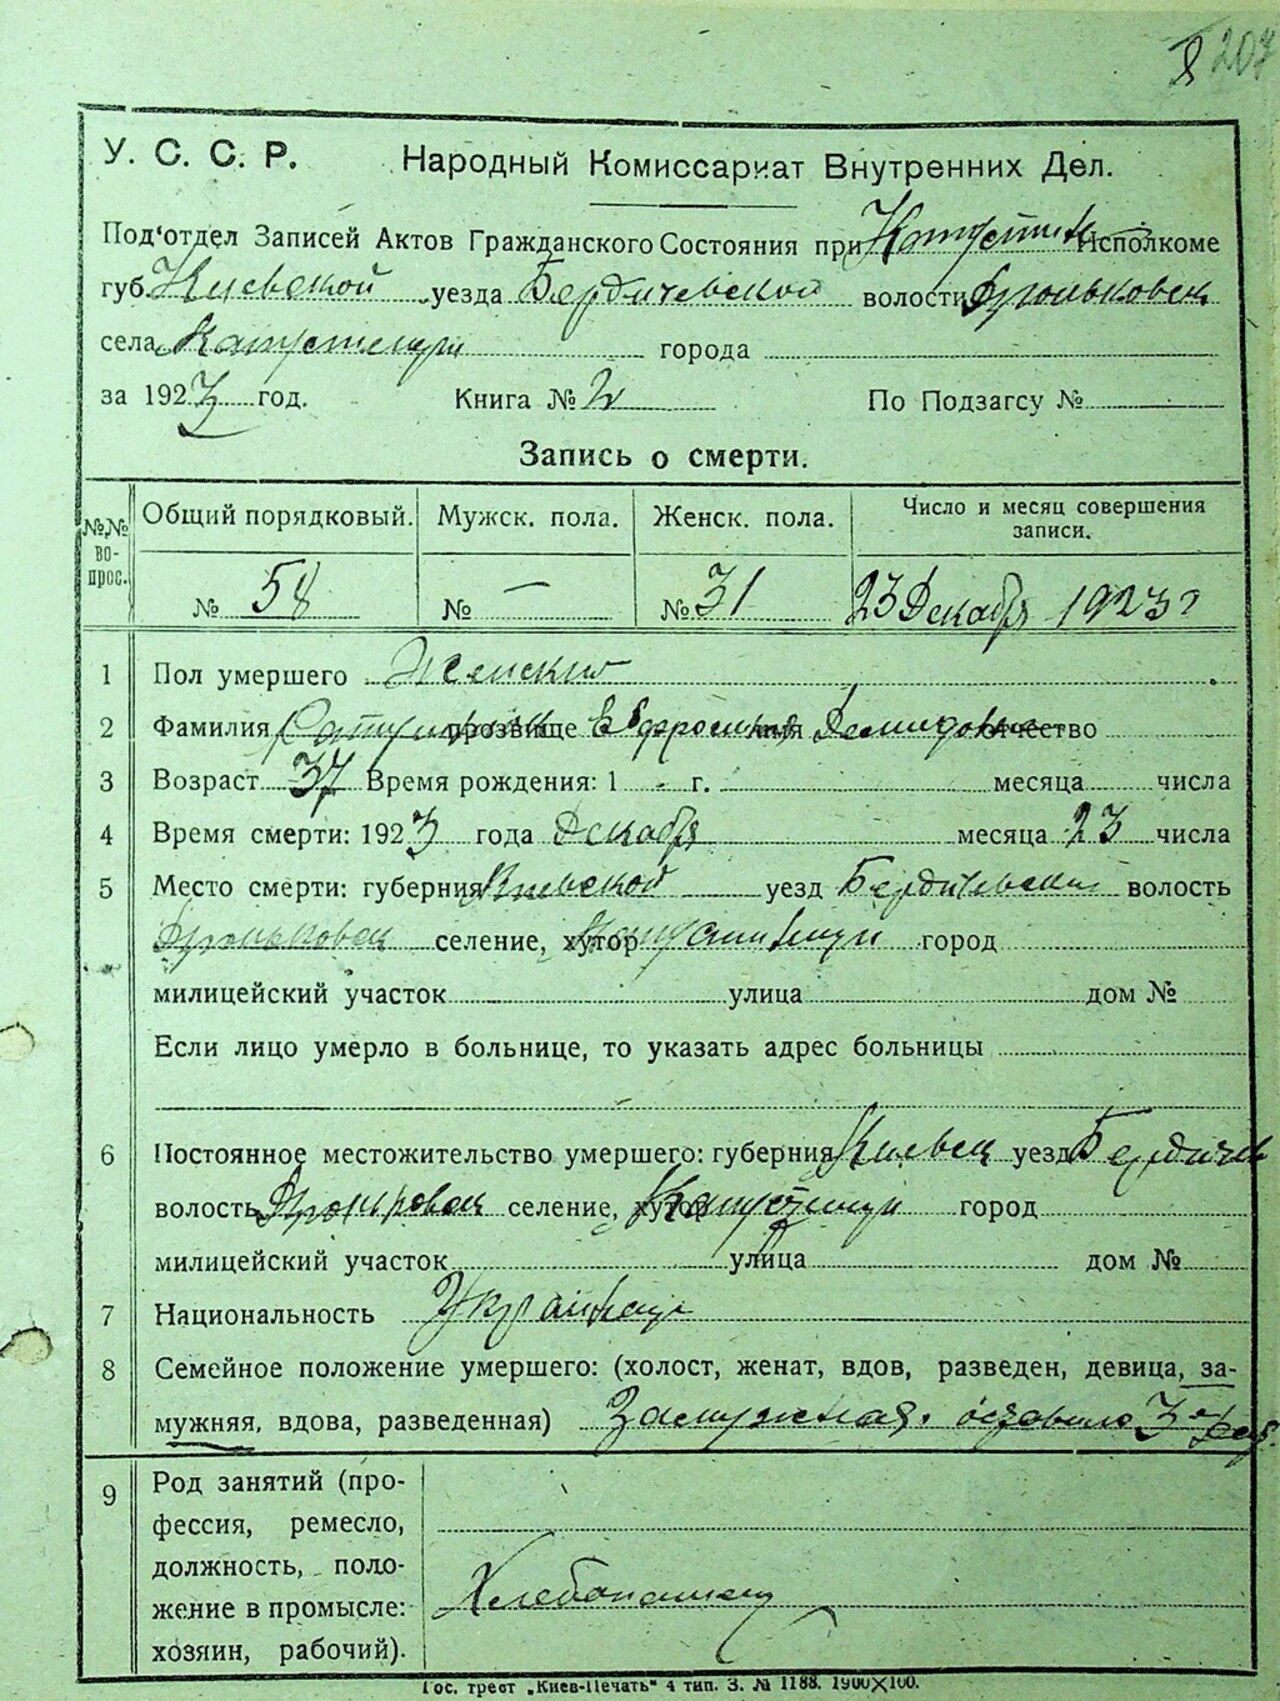 207
У. С. С. Р. Народный Комиссариат Внутренних Дел.
Под'отдел Записей Актов Гражданского Состояния при Капустин Исполкоме
губ. Киевской уезда Бердичевской волости
села города
за 1923 год. Книга № 2 По Подзагсу №
Запись о смерти.
№№ во-прос. Общий порядковый. Мужск. пола. Женск. пола. Число и месяц совершения записи.
№ 58 № — № 31 23 Декабря 1923 г
1 Пол умершего Женский
2 Фамилия прозвище Евфросиния имя Демидовна отчество
3 Возраст 37 Время рождения: 1 г. месяца числа
4 Время смерти: 1923 года Декабря месяца 23 числа
5 Место смерти: губерния Киевской уезд Бердичевский волость
селение, хутор город
милицейский участок улица дом №
Если лицо умерло в больнице, то указать адрес больницы
6 Постоянное местожительство умершего: губерния Киевск уезд Бердичев
волость селение, хутор город
милицейский участок улица дом №
7 Национальность
8 Семейное положение умершего: (холост, женат, вдов, разведен, девица, за-
мужняя, вдова, разведенная) Замужная. 3
9 Род занятий (про-
фессия, ремесло,
должность, поло-
жение в промысле: Хлебопашец
хозяин, рабочий).
Гос. трест „Киев-Печать" 4 тип. З. № 1188. 1900×100.